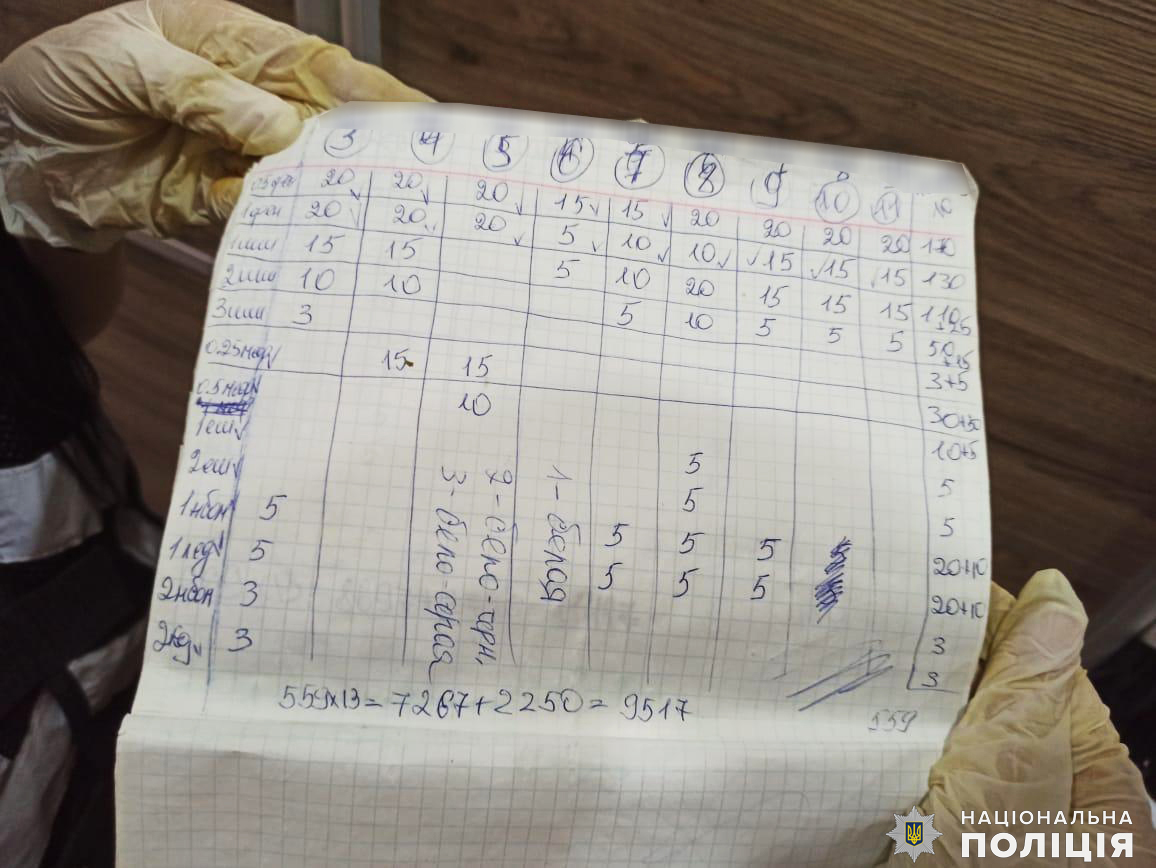 3 4 5 6 7 8 9 10 11
0.5 фен 20 20 20 15 15 20 20 20 20 170
1 фен 20 20 20 5 10 10 15 15 15 130
1 миш 15 15 5 10 20 15 15 15 110
2 миш 10 10 5 10 5 5 5 50
3 миш 3 3+5
0.25 меф 15 15 30+30
0.5 меф 10 10+5
1 сш 5 5
2 сш 5 5
1 нбом 5 5 5 5 20+10
1 лед 5 5 5 5 20+10
2 нбом 3 3
2 лед 3 3
3-бело-серая
2-бело-чорн.
1-белая
559х13=7267+2250=9517
559
НАЦІОНАЛЬНА
ПОЛІЦІЯ